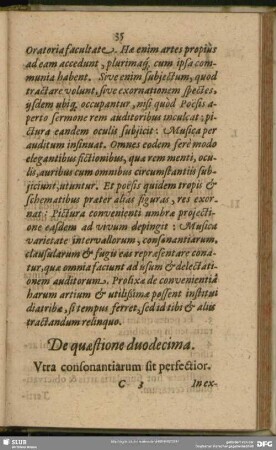 35
Oratoria facultate. Hæ enim artes propius
ad eam accedunt, plurimaq́; cum ipsa com-
munia habent. Sive enim subjectum, quod
tractare volunt, sive exornationem spectes,
ijsdem ubiq; occupantur, nisi quod Poësis a-
perto sermone rem auditoribus inculcat: pi-
ctura eandem oculis subjicit: Musica per
auditum insinuat. Omnes eodem ferè modo
elegantibus fictionibus, qua rem menti, ocu-
lis, auribus cum omnibus circumstantiis sub-
jiciunt, utuntur. Et poësis quidem tropis &
schematibus præter alias figuras, res exor-
nat: Pictura convenienti umbræ projectio-
ne easdem ad vivum depingit: Musica
varietate intervallorum, consonantiarum,
clausularum & fugis eas repræsentare cona-
tur, quæ omnia faciunt ad usum & delectati-
onem auditorum. Prolixæ de convenientiâ
harum artium & utilissimæ possent institui
diatribæ, si tempus ferret, sed id tibi & aliis
tractandum relinquo.
De quæstione duodecima.
Utra consonantiarum sit perfectior.
C 3
In ex-
SLUB
DFG